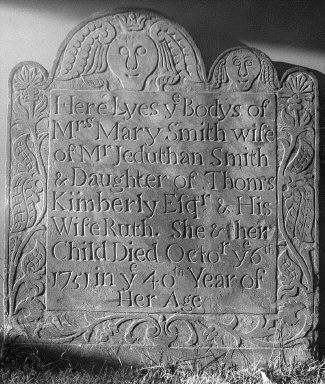 Here Lyes yᵉ Bodys of
Mʳˢ Mary Smith wife
of Mʳ Jeduthan Smith
& Daughter of Thomˢ
Kimberly Esqʳ & His
Wife Ruth. She & their
Child Died Octoʳ yᵉ 6ᵗʰ
1751 in yᵉ 40ᵗʰ Year of
Her Age